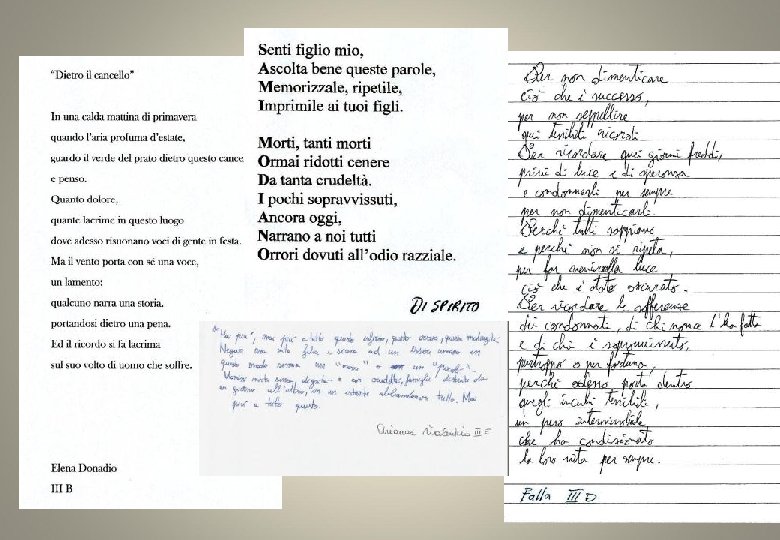 “Dietro il cancello”
In una calda mattina di primavera
quando l’aria profuma d’estate,
guardo il verde del prato dietro questo cance
e penso.
Quanto dolore,
quante lacrime in questo luogo
dove adesso risuonano voci di gente in festa.
Ma il vento porta con sé una voce,
un lamento:
qualcuno narra una storia.
portandosi dietro una pena.
Ed il ricordo si fa lacrima
sul suo volto di uomo che soffre.
Elena Donadio
III B
Senti figlio mio,
Ascolta bene queste parole,
Memorizzale, ripetile,
Imprimile ai tuoi figli.
Morti, tanti morti
Ormai ridotti cenere
Da tanta crudeltà.
I pochi sopravvissuti,
Ancora oggi,
Narrano a noi tutti
Orrori dovuti all’odio razziale.
DI SPIRITO
"Mai più", mai più a tutto questo
Nessuno
questo modo "no"
un giorno all'altro, in un istante abbandonare tutto. Mai
più a tutto questo.
III E
Per non dimenticare
ciò che è successo,
per non seppellire
quei terribili ricordi.
Per ricordare quei giorni freddi,
privi di luce e di speranza
e condannarli per sempre
per non dimenticarli.
Perché tutti sappiano
e perché non si ripeta,
per far luce,
ciò che è stato oscurato.
Per ricordare le sofferenze
dei condannati, di chi non ce l'ha fatta
e di chi è sopravvissuto,
purtroppo o per fortuna,
perché adesso porta dentro
quegli incubi terribili,
un peso interminabile
che ha condizionato
la loro vita per sempre.
Palla III D